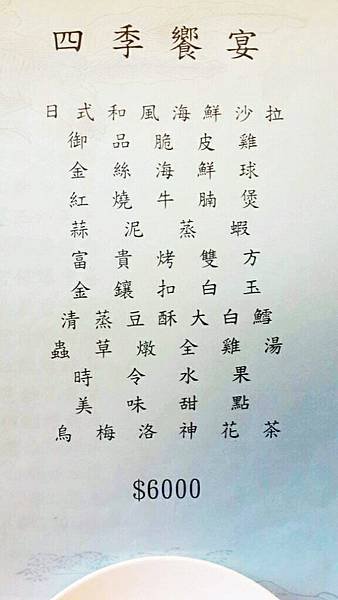 四季饗宴
日式和風海鮮沙拉
御品脆皮雞
金絲海鮮球
紅燒牛腩煲
蒜泥蒸蝦
富貴烤雙方
金鑲扣白玉
清蒸豆酥大白鱈
蟲草燉全雞湯
時令水果
美味甜點
烏梅洛神花茶
$6000